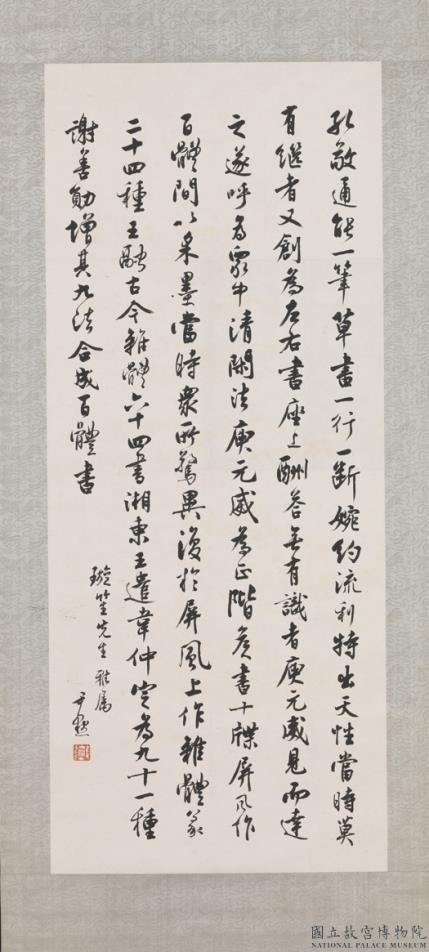 孔敬通能一筆草書一行一斷婉約流利特出天性當時莫
有繼者又創為左右書座上酬答無有識者庾元威見而達
之遂呼為眾中清閑法庾元威為正階侯書十牒屏風作
百體間以采墨當時眾所驚異復於屏風上作雜體篆
二十四種王融古今雜體六十四書湘東王遣韋仲定為九十一種
謝善勛增其九法合成百體書
璇笙先生雅屬
尹默
國立故宮博物院
NATIONAL PALACE MUSEUM